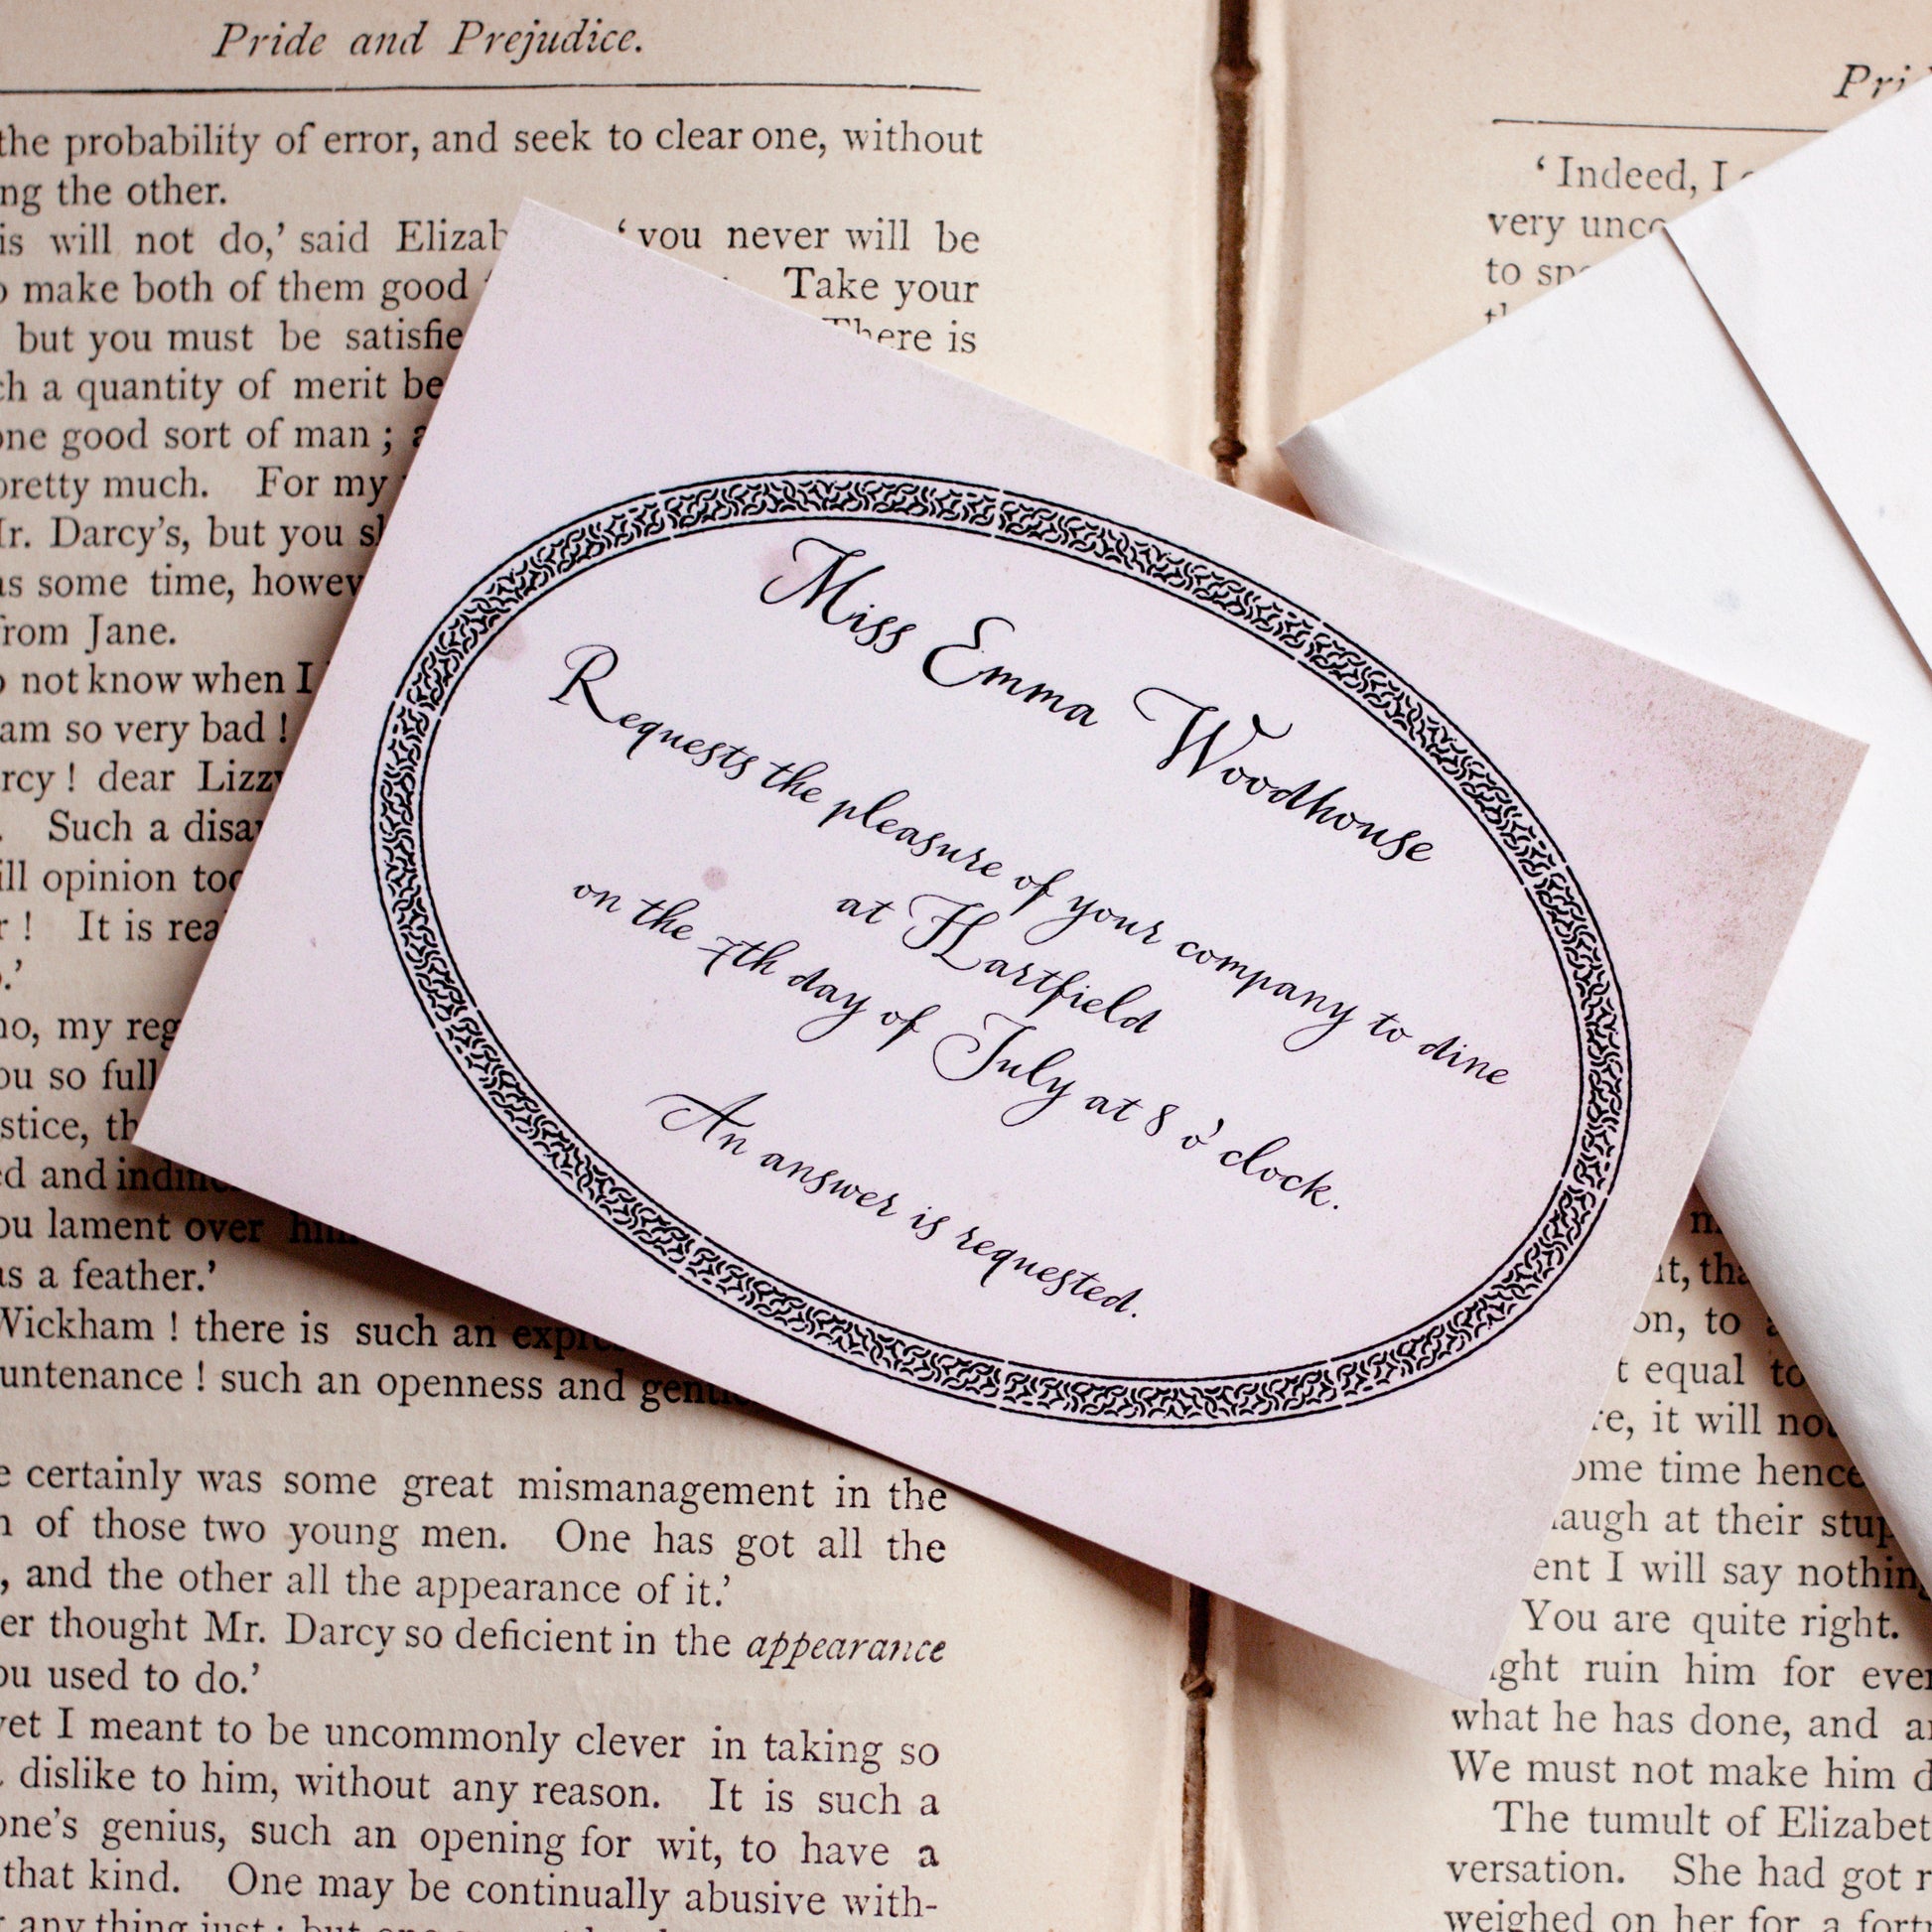 Pride and Prejudice.
the probability of error, and seek to clear one, without
the other.
will not do,' said 'you never will be
make both of them good Take your
but you must be There is
a quantity of merit
good sort of man;
pretty much. For my
Mr. Darcy's, but you
some time,
from Jane.
not know when I
am so very bad!
dear Lizzy
Such a
opinion
It is
no, my
you so full
and
you lament over
as a feather.'
Wickham! there is such an
such an openness and
certainly was some great mismanagement in the
of those two young men. One has got all the
, and the other all the appearance of it.'
thought Mr. Darcy so deficient in the appearance
you used to do.'
yet I meant to be uncommonly clever in taking so
dislike to him, without any reason. It is such a
one's genius, such an opening for wit, to have a
that kind. One may be continually abusive with-
any thing just; but
Miss Emma Woodhouse
Requests the pleasure of your company to dine
at Hartfield
on the 7th day of July at 8 o'clock.
An answer is requested.
'Indeed, I
very
to
on, to
equal to
it will
time hence
laugh at their
I will say
You are quite right.
ruin him for
what he has done, and
We must not make him
The tumult of
She had got
weighed on her for a